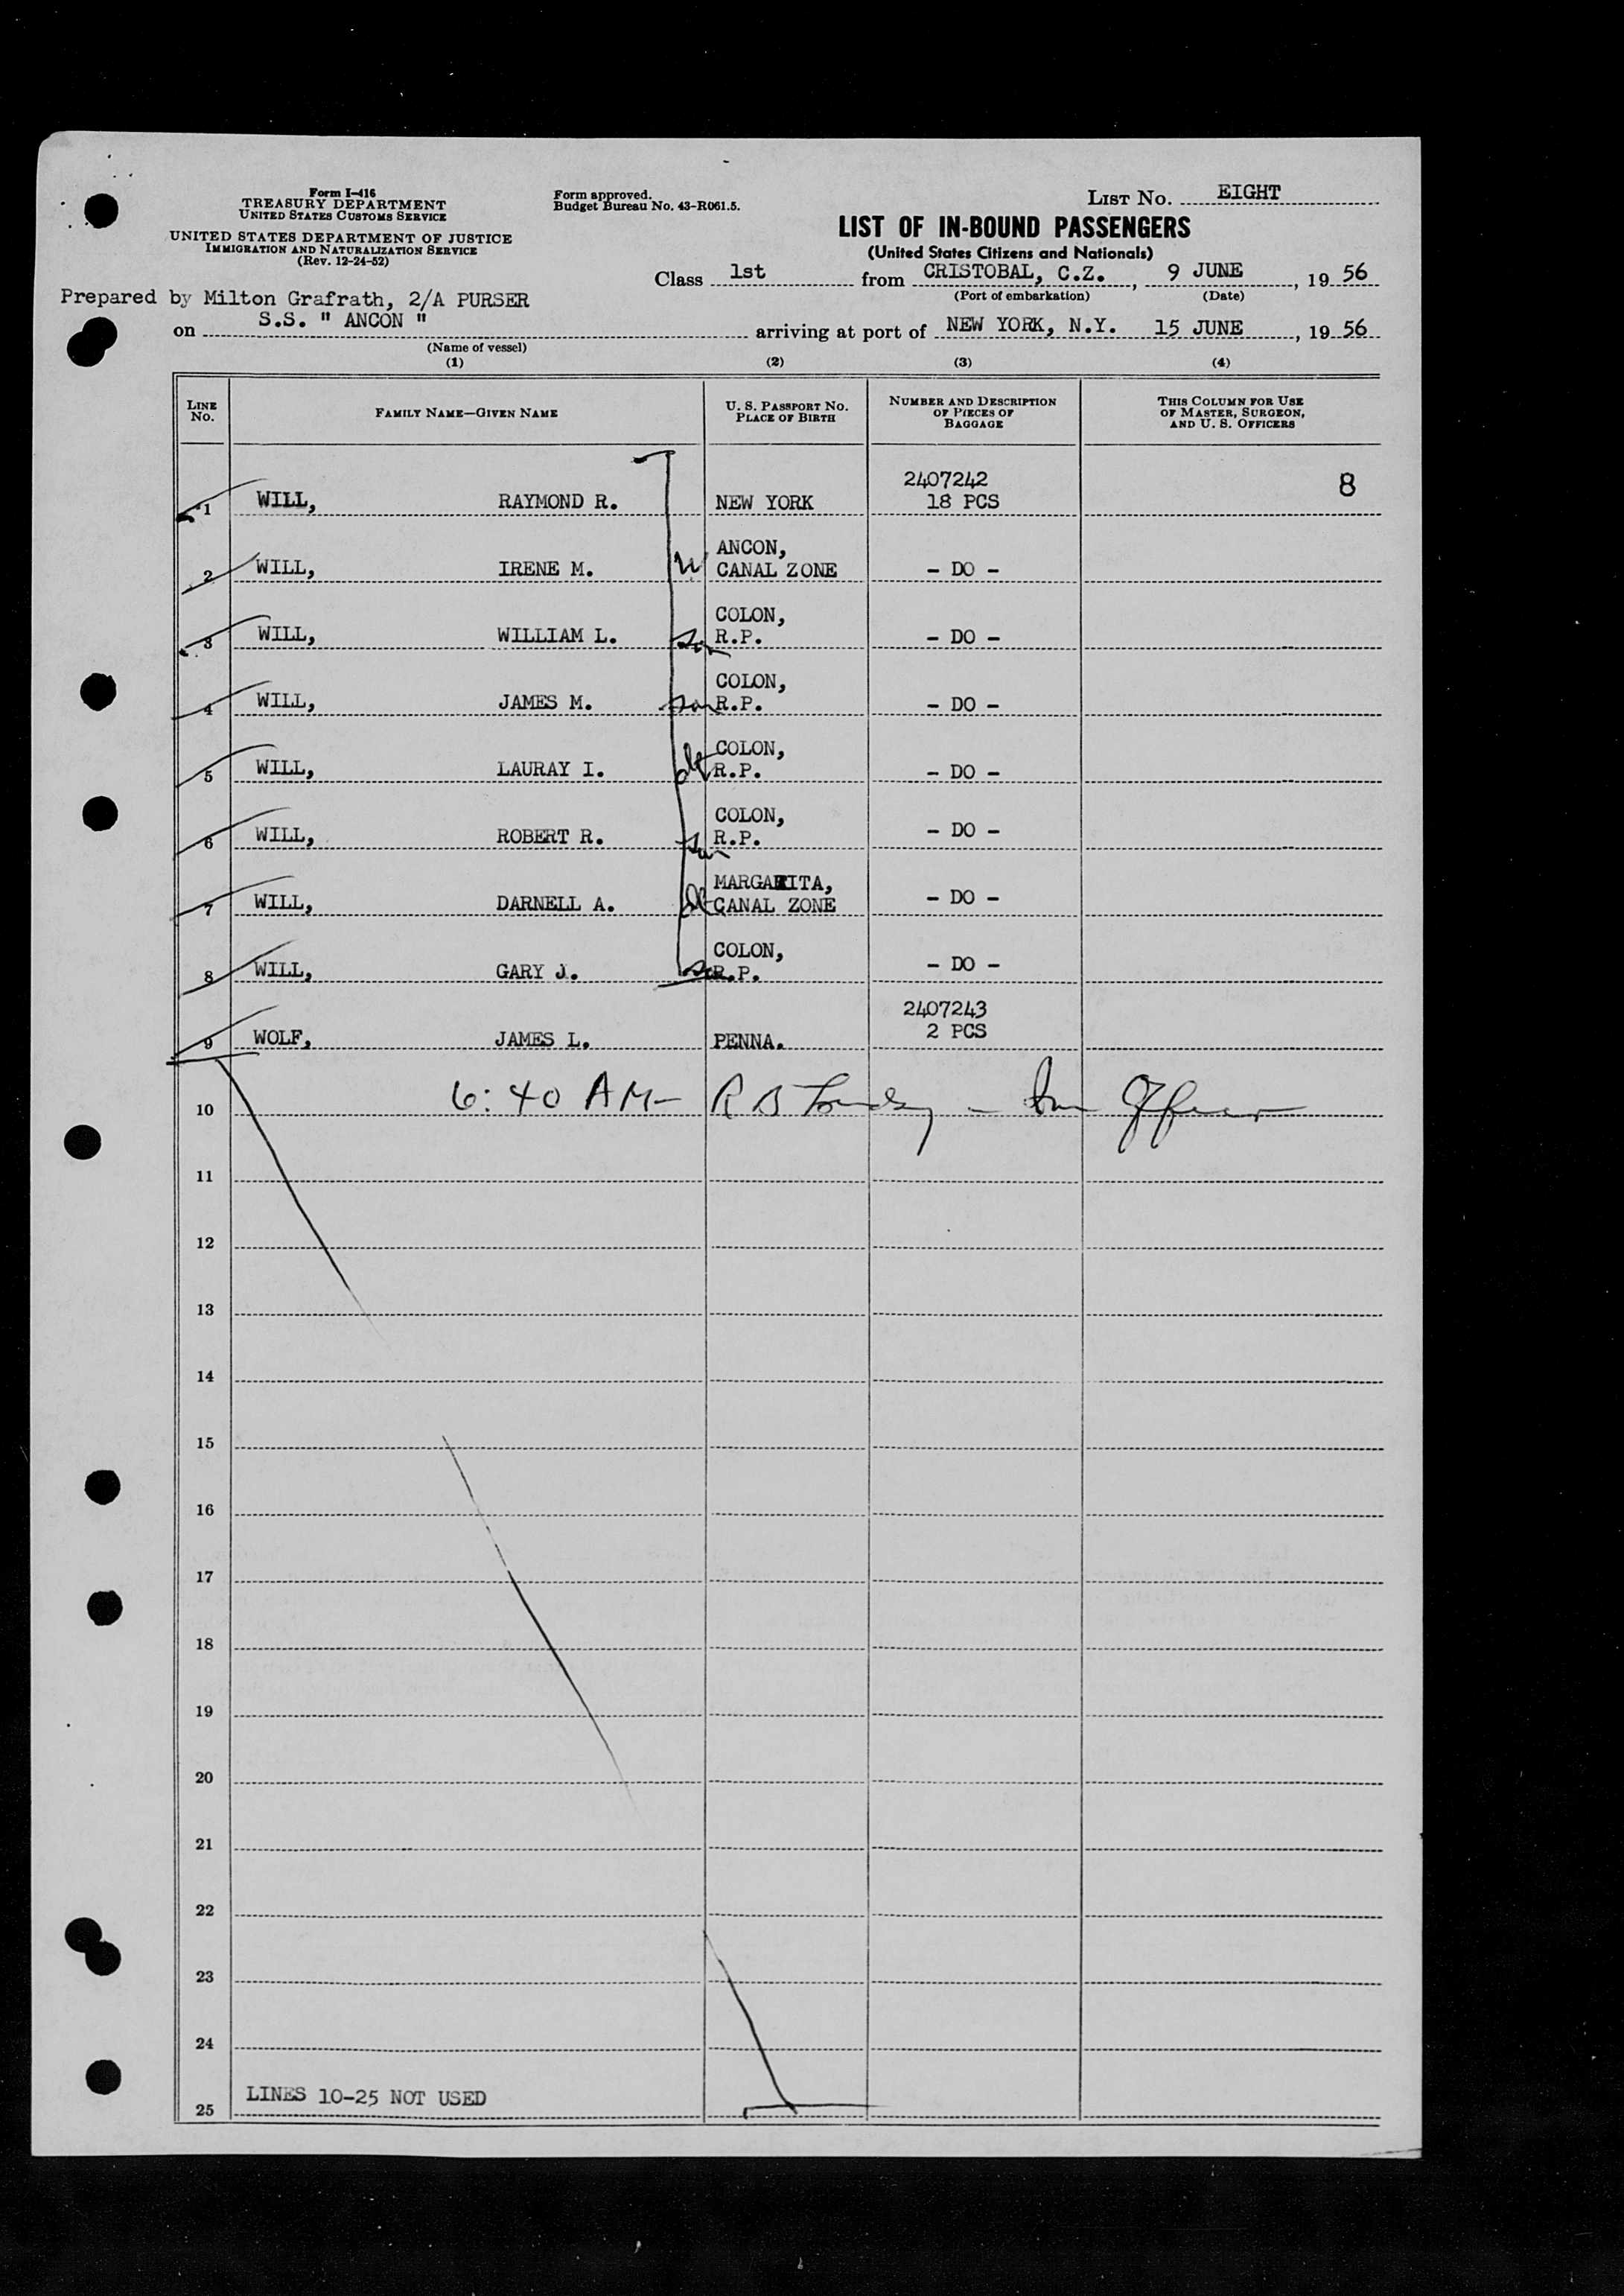 Form I-416
TREASURY DEPARTMENT
UNITED STATES CUSTOMS SERVICE
UNITED STATES DEPARTMENT OF JUSTICE
IMMIGRATION AND NATURALIZATION SERVICE
(Rev. 12-24-52)
Form approved.
Budget Bureau No. 43-R061.5.
LIST NO. EIGHT
LIST OF IN-BOUND PASSENGERS
(United States Citizens and Nationals)
Class 1st from CRISTOBAL, C.Z., 9 JUNE, 19 56
(Port of embarkation) (Date)
Prepared by Milton Grafrath, 2/A PURSER
on S.S. " ANCON " arriving at port of NEW YORK, N.Y. 15 JUNE, 19 56
(Name of vessel)
(1) (2) (3) (4)
LINE NO. FAMILY NAME—GIVEN NAME U. S. PASSPORT NO. PLACE OF BIRTH NUMBER AND DESCRIPTION OF PIECES OF BAGGAGE THIS COLUMN FOR USE OF MASTER, SURGEON, AND U. S. OFFICERS
2407242
1 WILL, RAYMOND R. NEW YORK 18 PCS 8
ANCON,
2 WILL, IRENE M. W CANAL ZONE - DO -
COLON,
3 WILL, WILLIAM L. son R.P. - DO -
COLON,
4 WILL, JAMES M. son R.P. - DO -
COLON,
5 WILL, LAURAY I. dt R.P. - DO -
COLON,
6 WILL, ROBERT R. son R.P. - DO -
MARGARITA,
7 WILL, DARNELL A. dt CANAL ZONE - DO -
COLON,
8 WILL, GARY J. son R.P. - DO -
2407243
9 WOLF, JAMES L. PENNA. 2 PCS
10 6:40 AM- R B - Imm Officer
11
12
13
14
15
16
17
18
19
20
21
22
23
24
25 LINES 10-25 NOT USED